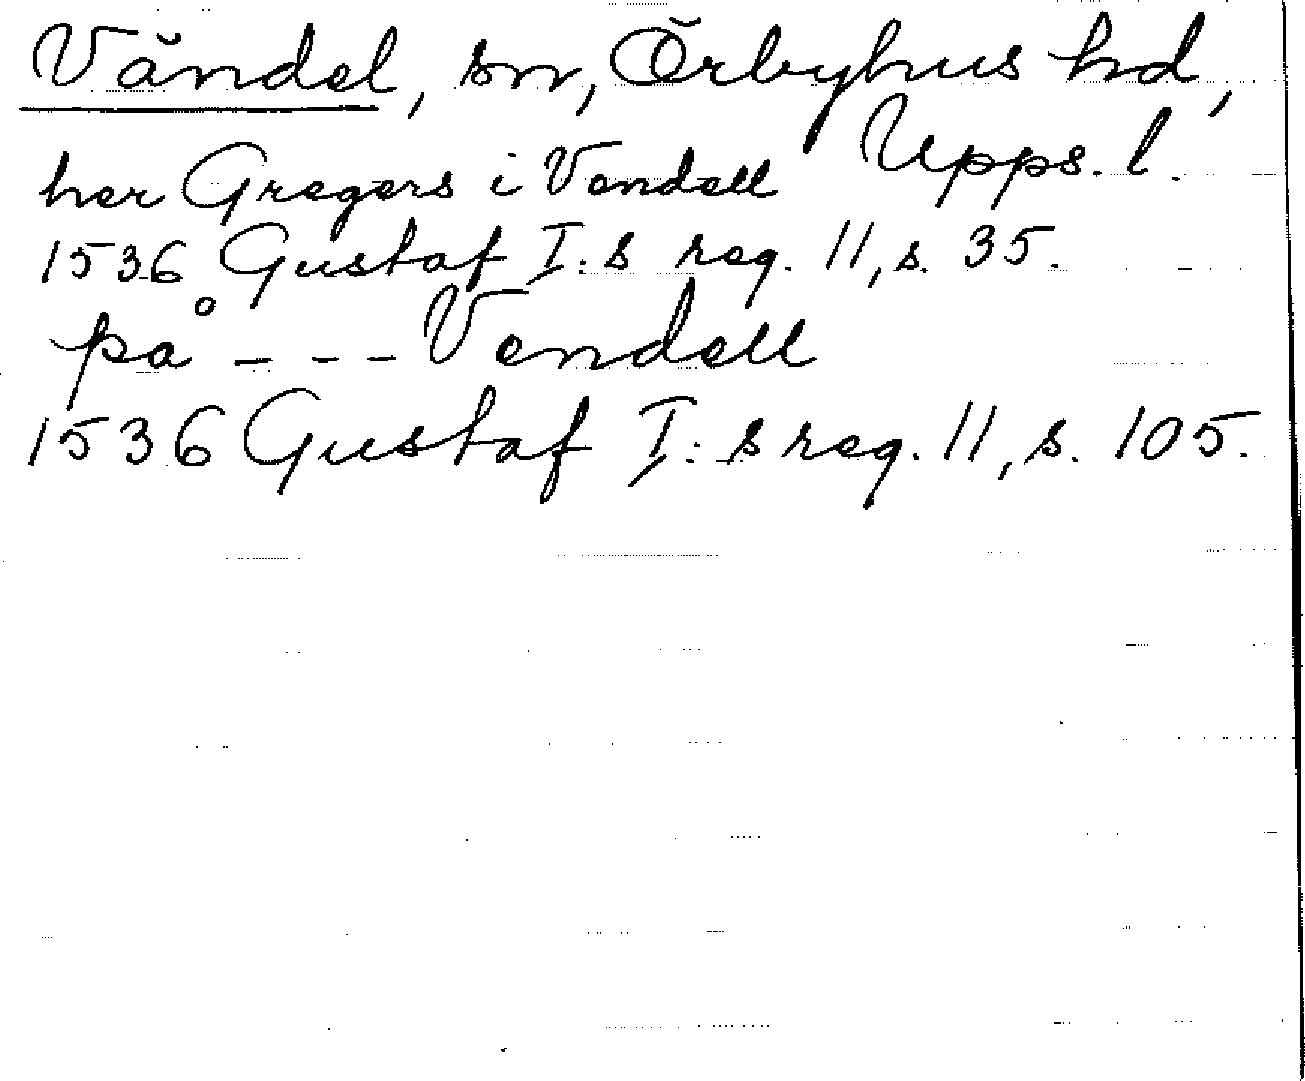 Vändel, sn, Örbyhus hd,
Upps. l.
her Gregers i Vendell
1536 Gustaf I:s reg. 11, s. 35.
på - - - Vendell
1536 Gustaf I:s reg. 11, s. 105.